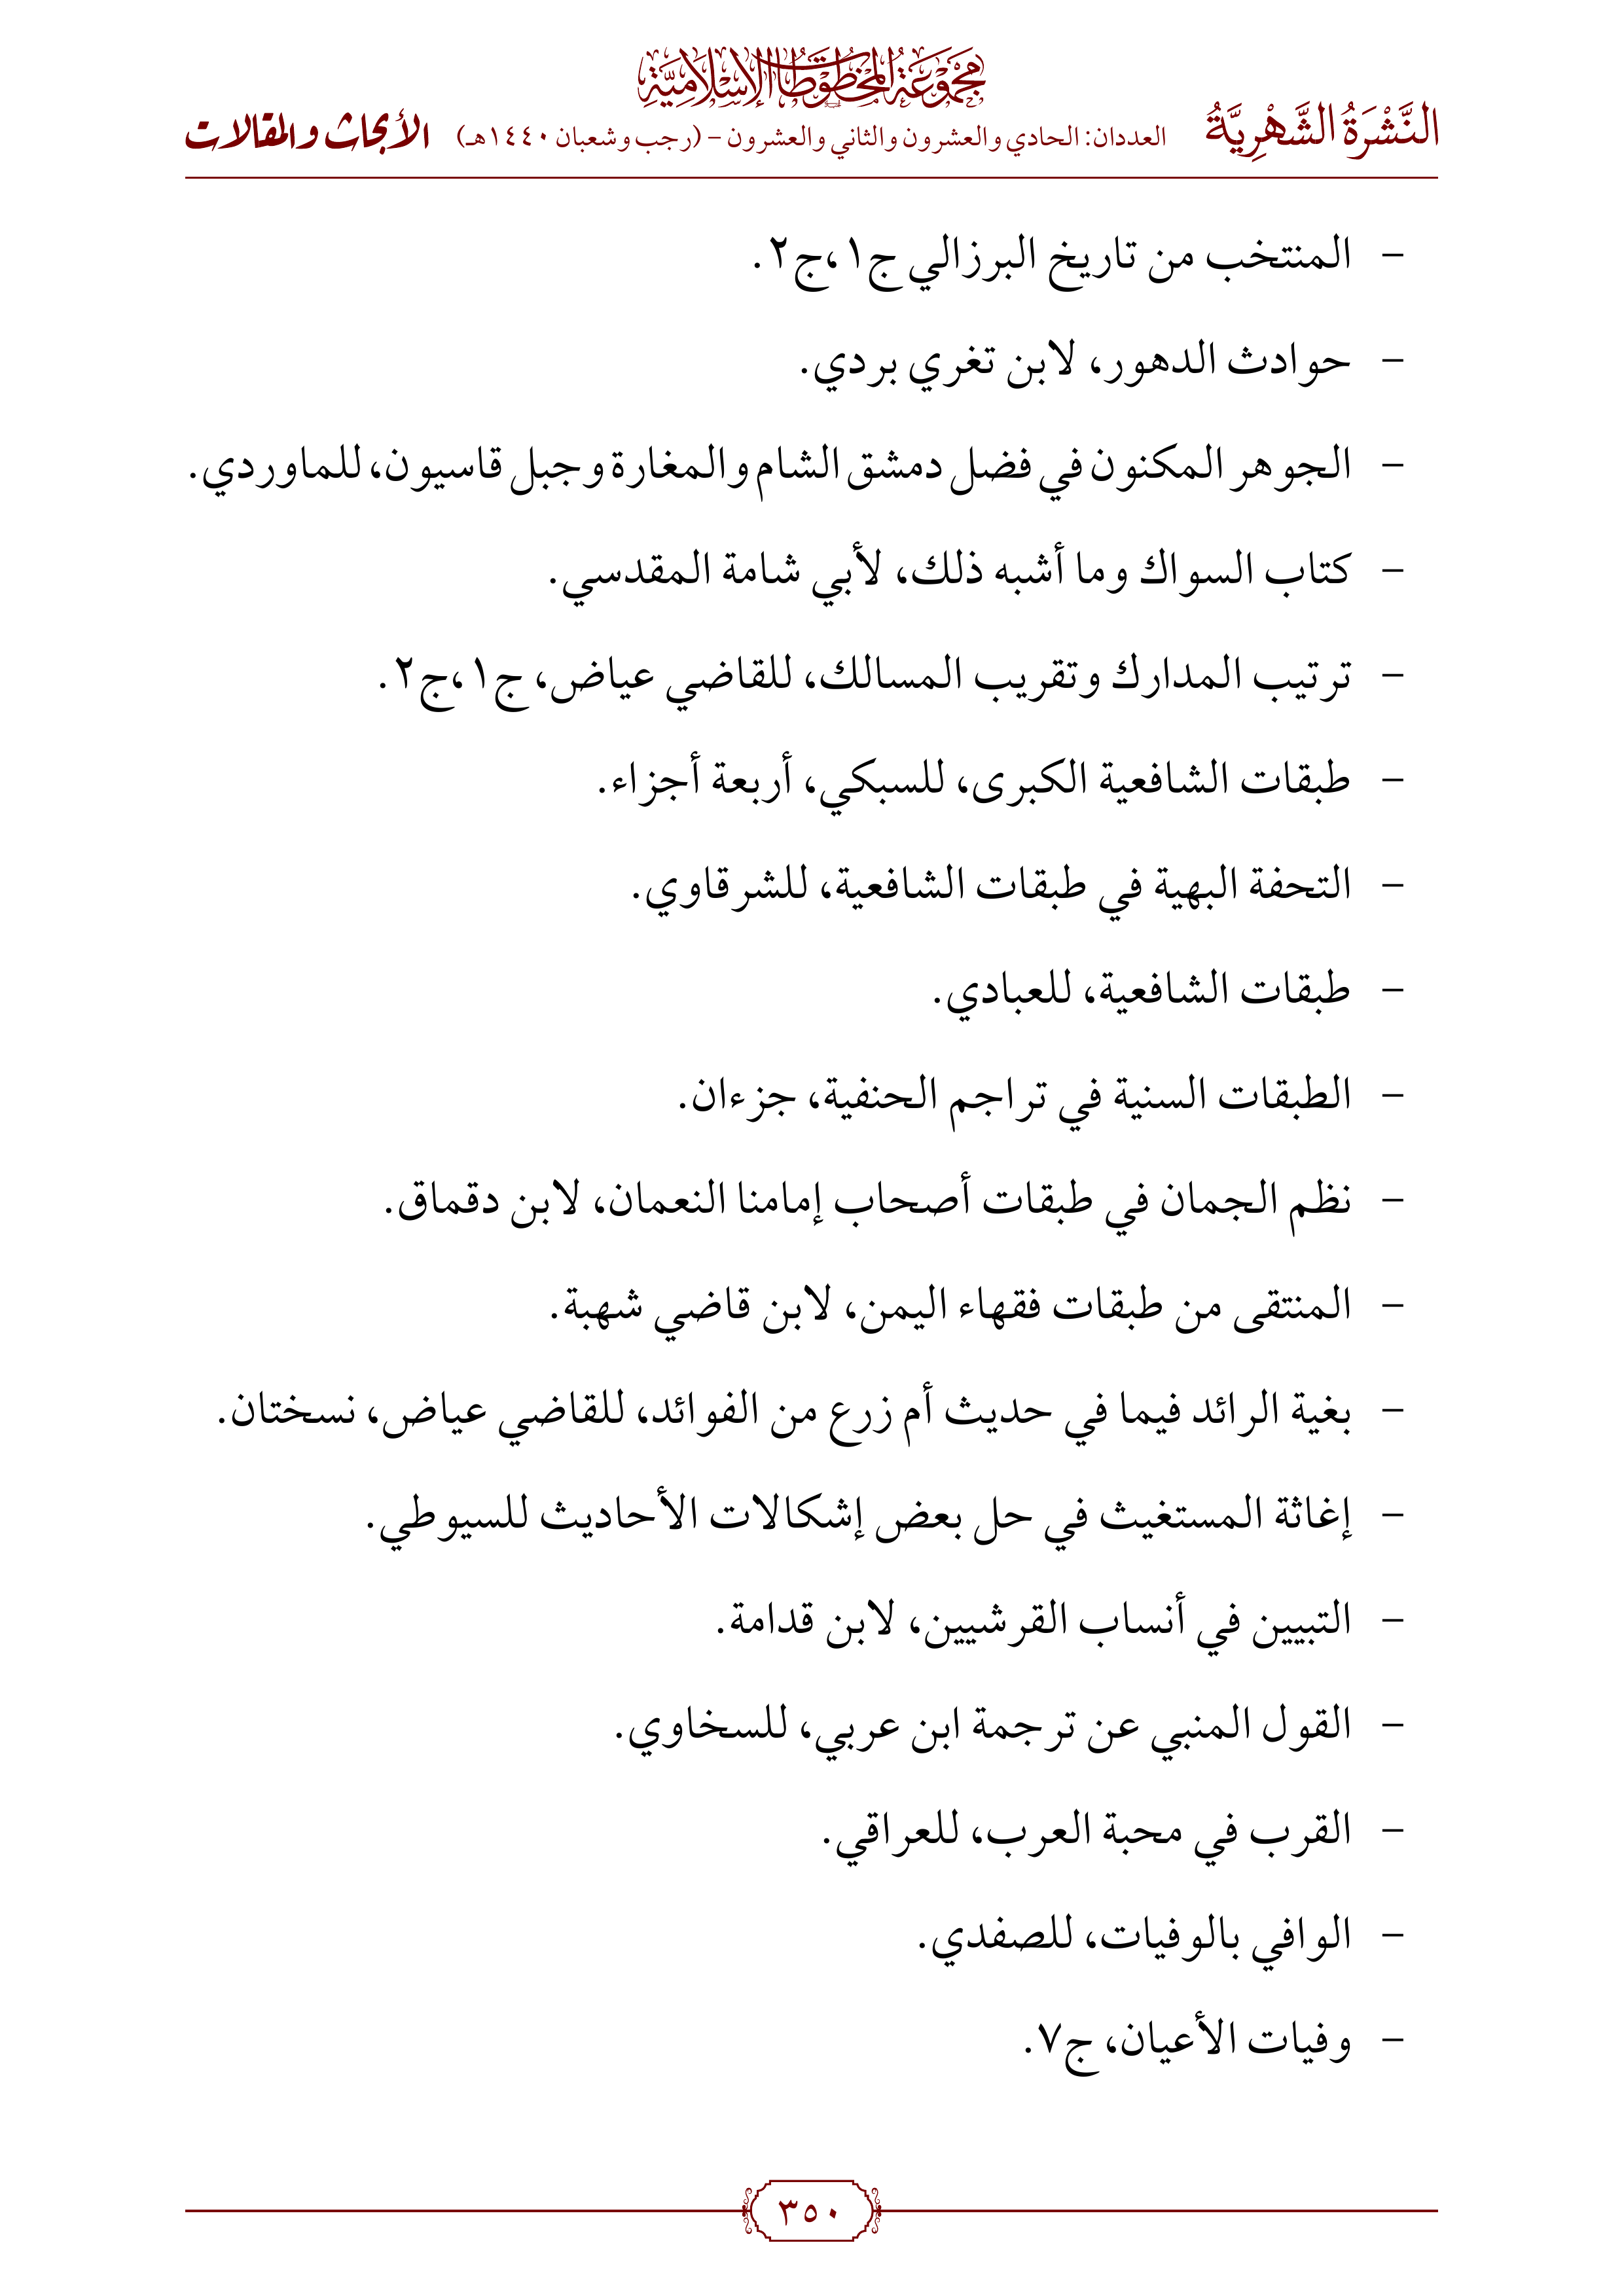 مَجْمُوعَةُ المَخْطُوطَاتِ الإِسْلَامِيَّةِ
النَّشْرَةُ الشَّهْرِيَّةُ العددان: الحادي والعشرون والثاني والعشرون – (رجب وشعبان ١٤٤٠هـ) الأبحاث والمقالات
– المنتخب من تاريخ البرزالي ج١،ج٢.
– حوادث الدهور، لابن تغري بردي.
– الجوهر المكنون في فضل دمشق الشام والمغارة وجبل قاسيون، للماوردي.
– كتاب السواك وما أشبه ذلك، لأبي شامة المقدسي.
– ترتيب المدارك وتقريب المسالك، للقاضي عياض، ج١،ج٢.
– طبقات الشافعية الكبرى، للسبكي، أربعة أجزاء.
– التحفة البهية في طبقات الشافعية، للشرقاوي.
– طبقات الشافعية، للعبادي.
– الطبقات السنية في تراجم الحنفية، جزءان.
– نظم الجمان في طبقات أصحاب إمامنا النعمان، لابن دقماق.
– المنتقى من طبقات فقهاء اليمن، لابن قاضي شهبة.
– بغية الرائد فيما في حديث أم زرع من الفوائد، للقاضي عياض، نسختان.
– إغاثة المستغيث في حل بعض إشكالات الأحاديث للسيوطي.
– التبيين في أنساب القرشيين، لابن قدامة.
– القول المنبي عن ترجمة ابن عربي، للسخاوي.
– القرب في محبة العرب، للعراقي.
– الوافي بالوفيات، للصفدي.
– وفيات الأعيان، ج٧.
٣٥٠